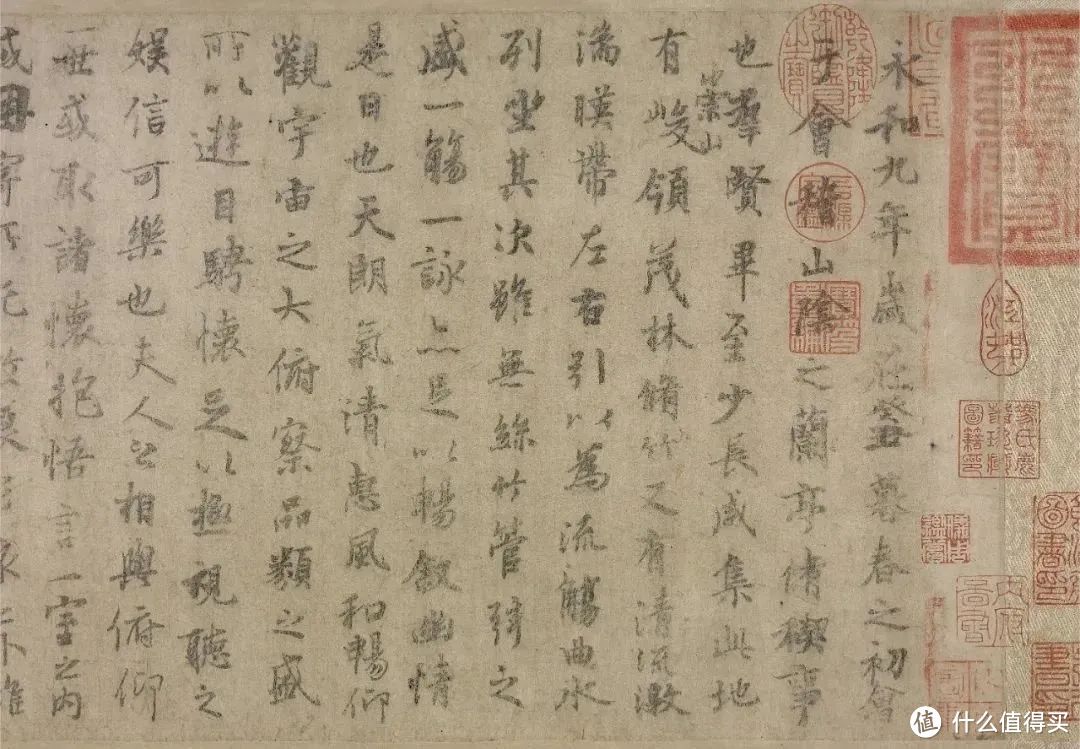 永和九年歲在癸丑暮春之初會
于會稽山陰之蘭亭脩稧事
也羣賢畢至少長咸集此地
有崇山峻領茂林脩竹又有清流激
湍暎帶左右引以為流觴曲水
列坐其次雖無絲竹管弦之
盛一觴一詠亦足以暢敘幽情
是日也天朗氣清惠風和暢仰
觀宇宙之大俯察品類之盛
所以遊目騁懷足以極視聽之
娛信可樂也夫人之相與俯仰
一世或取諸懷抱悟言一室之內
值 什么值得买